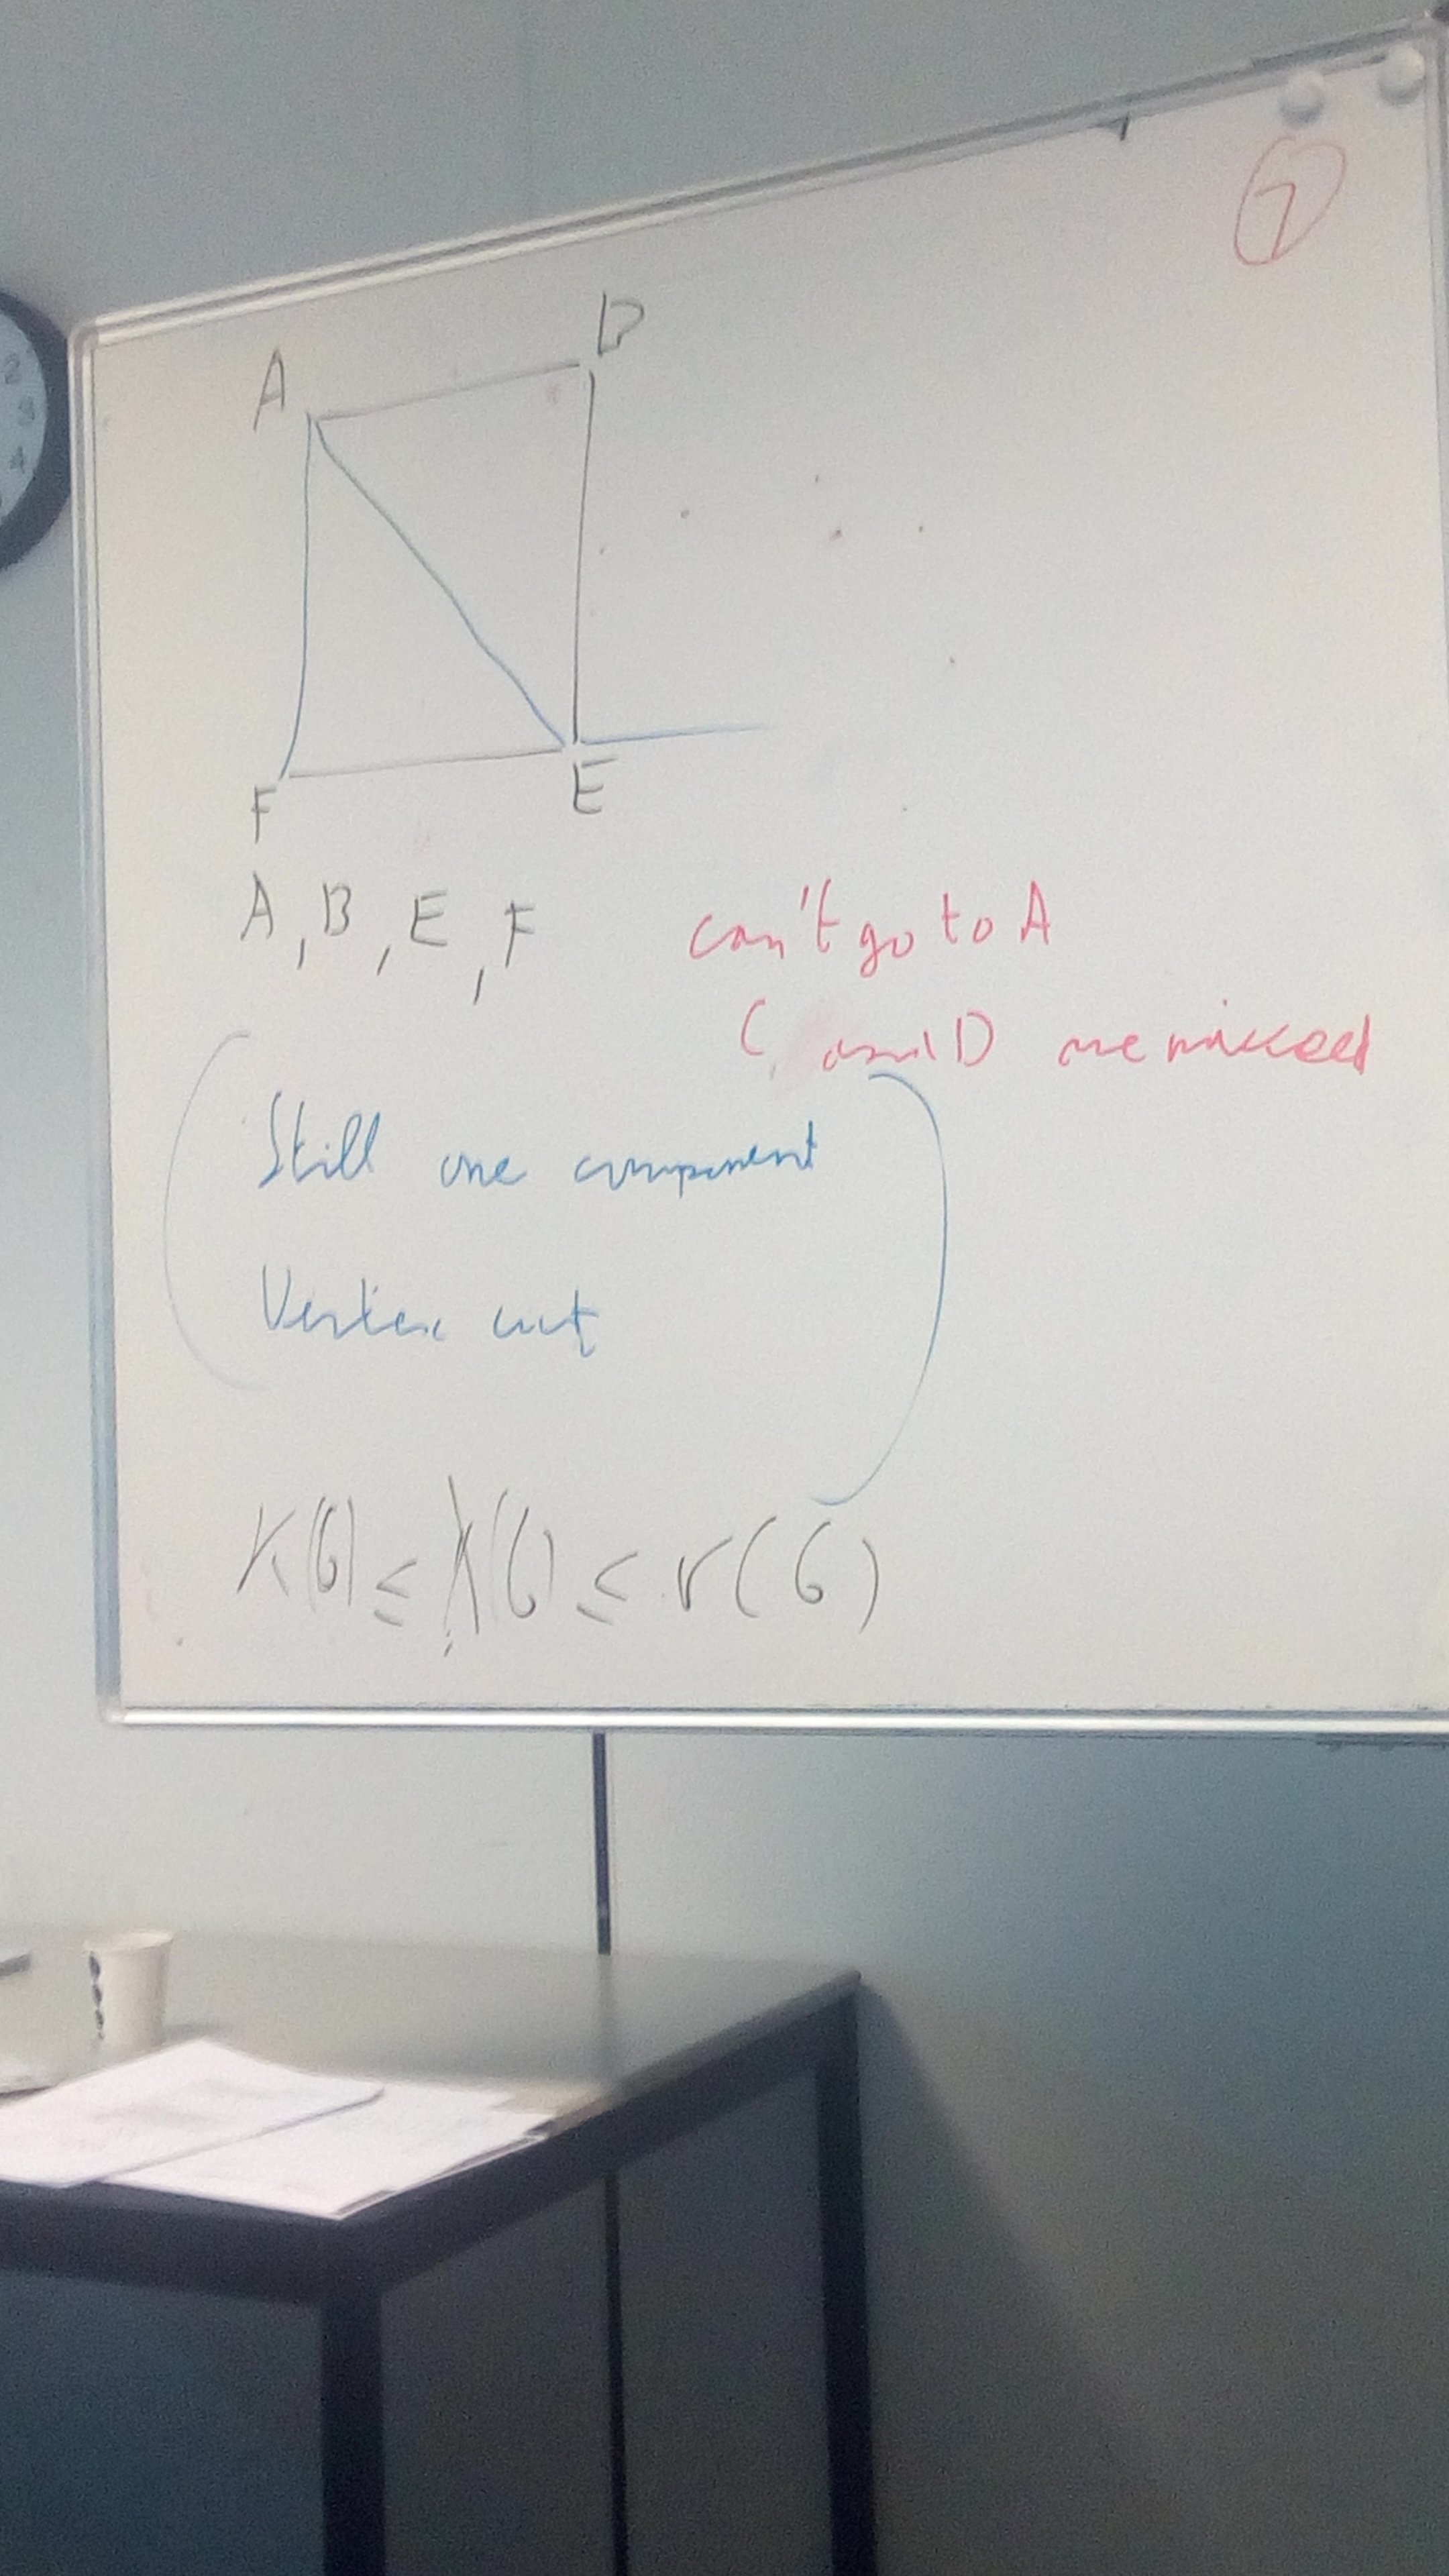 7
2
3
4
A
B
F
E
A, B, E, F
can't go to A
C and D are missed
Still one component
Vertex cut
K(G) ≤ λ(G) ≤ r(G)